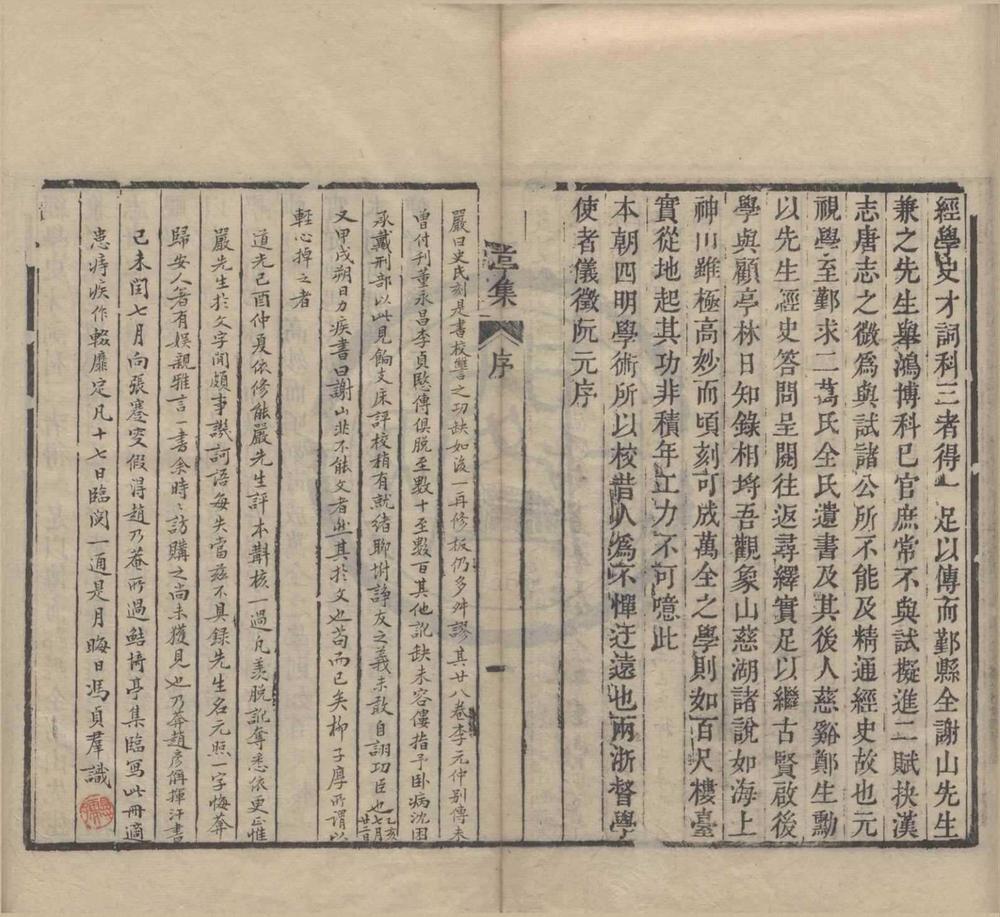 經學史才詞科三者得一足以傳而鄞縣全謝山先生
兼之先生舉鴻博科已官庶常不與試擬進二賦抉漢
志唐志之微爲與試諸公所不能及精通經史故也元
視學至鄞求二萬氏全氏遺書及其後人慈谿鄭生勳
以先生經史答問呈閱往返尋繹實足以繼古賢啟後
學與顧亭林日知錄相埒吾觀象山慈湖諸說如海上
神山雖極高妙而頃刻可成萬全之學則如百尺樓臺
實從地起其功非積年工力不可噫此
本朝四明學術所以校昔人爲不憚迂遠也兩浙督學
使者儀徵阮元序
亭集
序
一
嚴曰史氏刻是書校讐之功缺如後一再修板仍多舛謬其廿八卷李元仲別傳未
曾付刊董永昌李貞愍傳俱脫至數十至數百其他訛缺未容僂指予卧病沈困
承戴刑部以此見餉支床評校稍有就緒聊坿諍友之義未敢自詡功臣也乙亥七月廿二日
又甲戌朔日力疾書曰謝山非不能文者也其於文也苟而已矣柳子厚所謂以
輕心掉之者
道光己酉仲夏依修能嚴先生評本斠核一過凡羨脫訛奪悉依更正惟
嚴先生於文字間頗事譏訶語每失當茲不具錄先生名元照一字悔菴
歸安人著有娛親雅言一書余時〻訪購之尚未獲見也乃菴趙彥偁揮汗書
己未閏七月向張蹇叟假得趙乃菴所過鮚埼亭集臨寫此冊適
患痔疾作輟靡定凡十七日臨閱一通是月晦日馮貞羣識